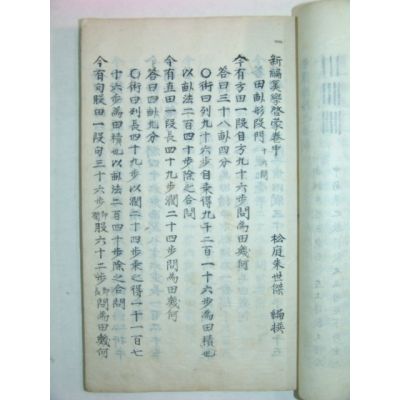 新編筭學啓蒙卷中　松庭朱世傑　編撰
田畝形段門 十六問
今有方田一段自方九十六步問為田幾何
答曰三十八畝四分
○術曰列九十六步自乗得九千二百一十六步為田積也
以畝法二百四十步除之合問
今有直田一段長四十九步濶二十四步問為田幾何
答曰四畝九分
○術曰列長四十九步以濶二十四步乗之得一千一百七
十六步為田積也以畝法二百四十步除之合問
今有句股田一段句三十六步 即濶 股六十二步 即長 問為田幾何